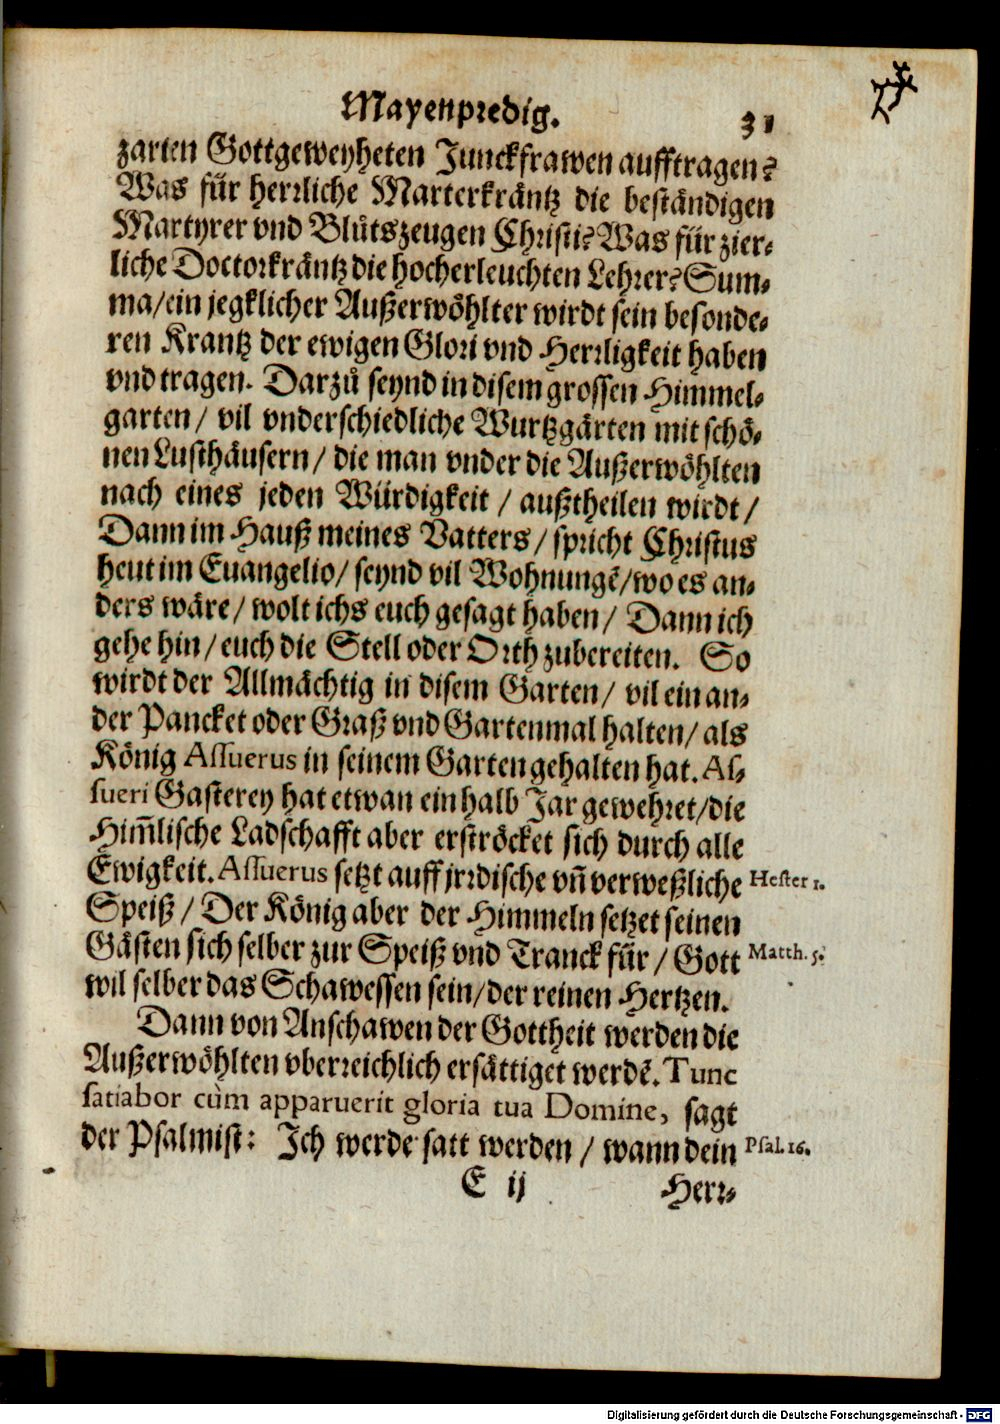 Mayenpredig. 31
zarten Gottgeweyheten Junckfrawen aufftragen?
Was für herrliche Marterkräntz die beständigen
Martyrer vnd Blůtszeugen Christi? Was für zier-
liche Doctorkräntz die hocherleuchten Lehrer? Sum-
ma/ ein jegklicher Außerwöhlter wirdt sein besonde-
ren Krantz der ewigen Glori vnd Herrligkeit haben
vnd tragen. Darzů seynd in disem grossen Himmel-
garten/ vil vnderschiedliche Wurtzgärten mit schö-
nen Lusthäusern/ die man vnder die Außerwöhlten
nach eines jeden Würdigkeit / außtheilen wirdt/
Dann im Hauß meines Vatters/ spricht Christus
heut im Euangelio/ seynd vil Wohnungẽ/ wo es an-
ders wäre/ wolt ichs euch gesagt haben/ Dann ich
gehe hin/ euch die Stell oder Orth zubereiten. So
wirdt der Allmächtig in disem Garten/ vil ein an-
der Pancket oder Graß vnd Gartenmal halten/ als
König Assuerus in seinem Garten gehalten hat. As-
sueri Gasterey hat etwan ein halb Jar gewehret/ die
Him̃lische Ladschafft aber erströcket sich durch alle
Ewigkeit. Assuerus setzt auff jrrdische vñ verweßliche Hester 1.
Speiß / Der König aber der Himmeln setzet seinen
Gästen sich selber zur Speiß vnd Tranck für / Gott Matth. 5.
wil selber das Schawessen sein/ der reinen Hertzen.
Dann von Anschawen der Gottheit werden die
Außerwöhlten vberreichlich ersättiget werdẽ. Tunc
satiabor cùm apparuerit gloria tua Domine, sagt
der Psalmist: Ich werde satt werden / wann dein Psal. 16.
E ij Herr-
Digitalisierung gefördert durch die Deutsche Forschungsgemeinschaft - DFG